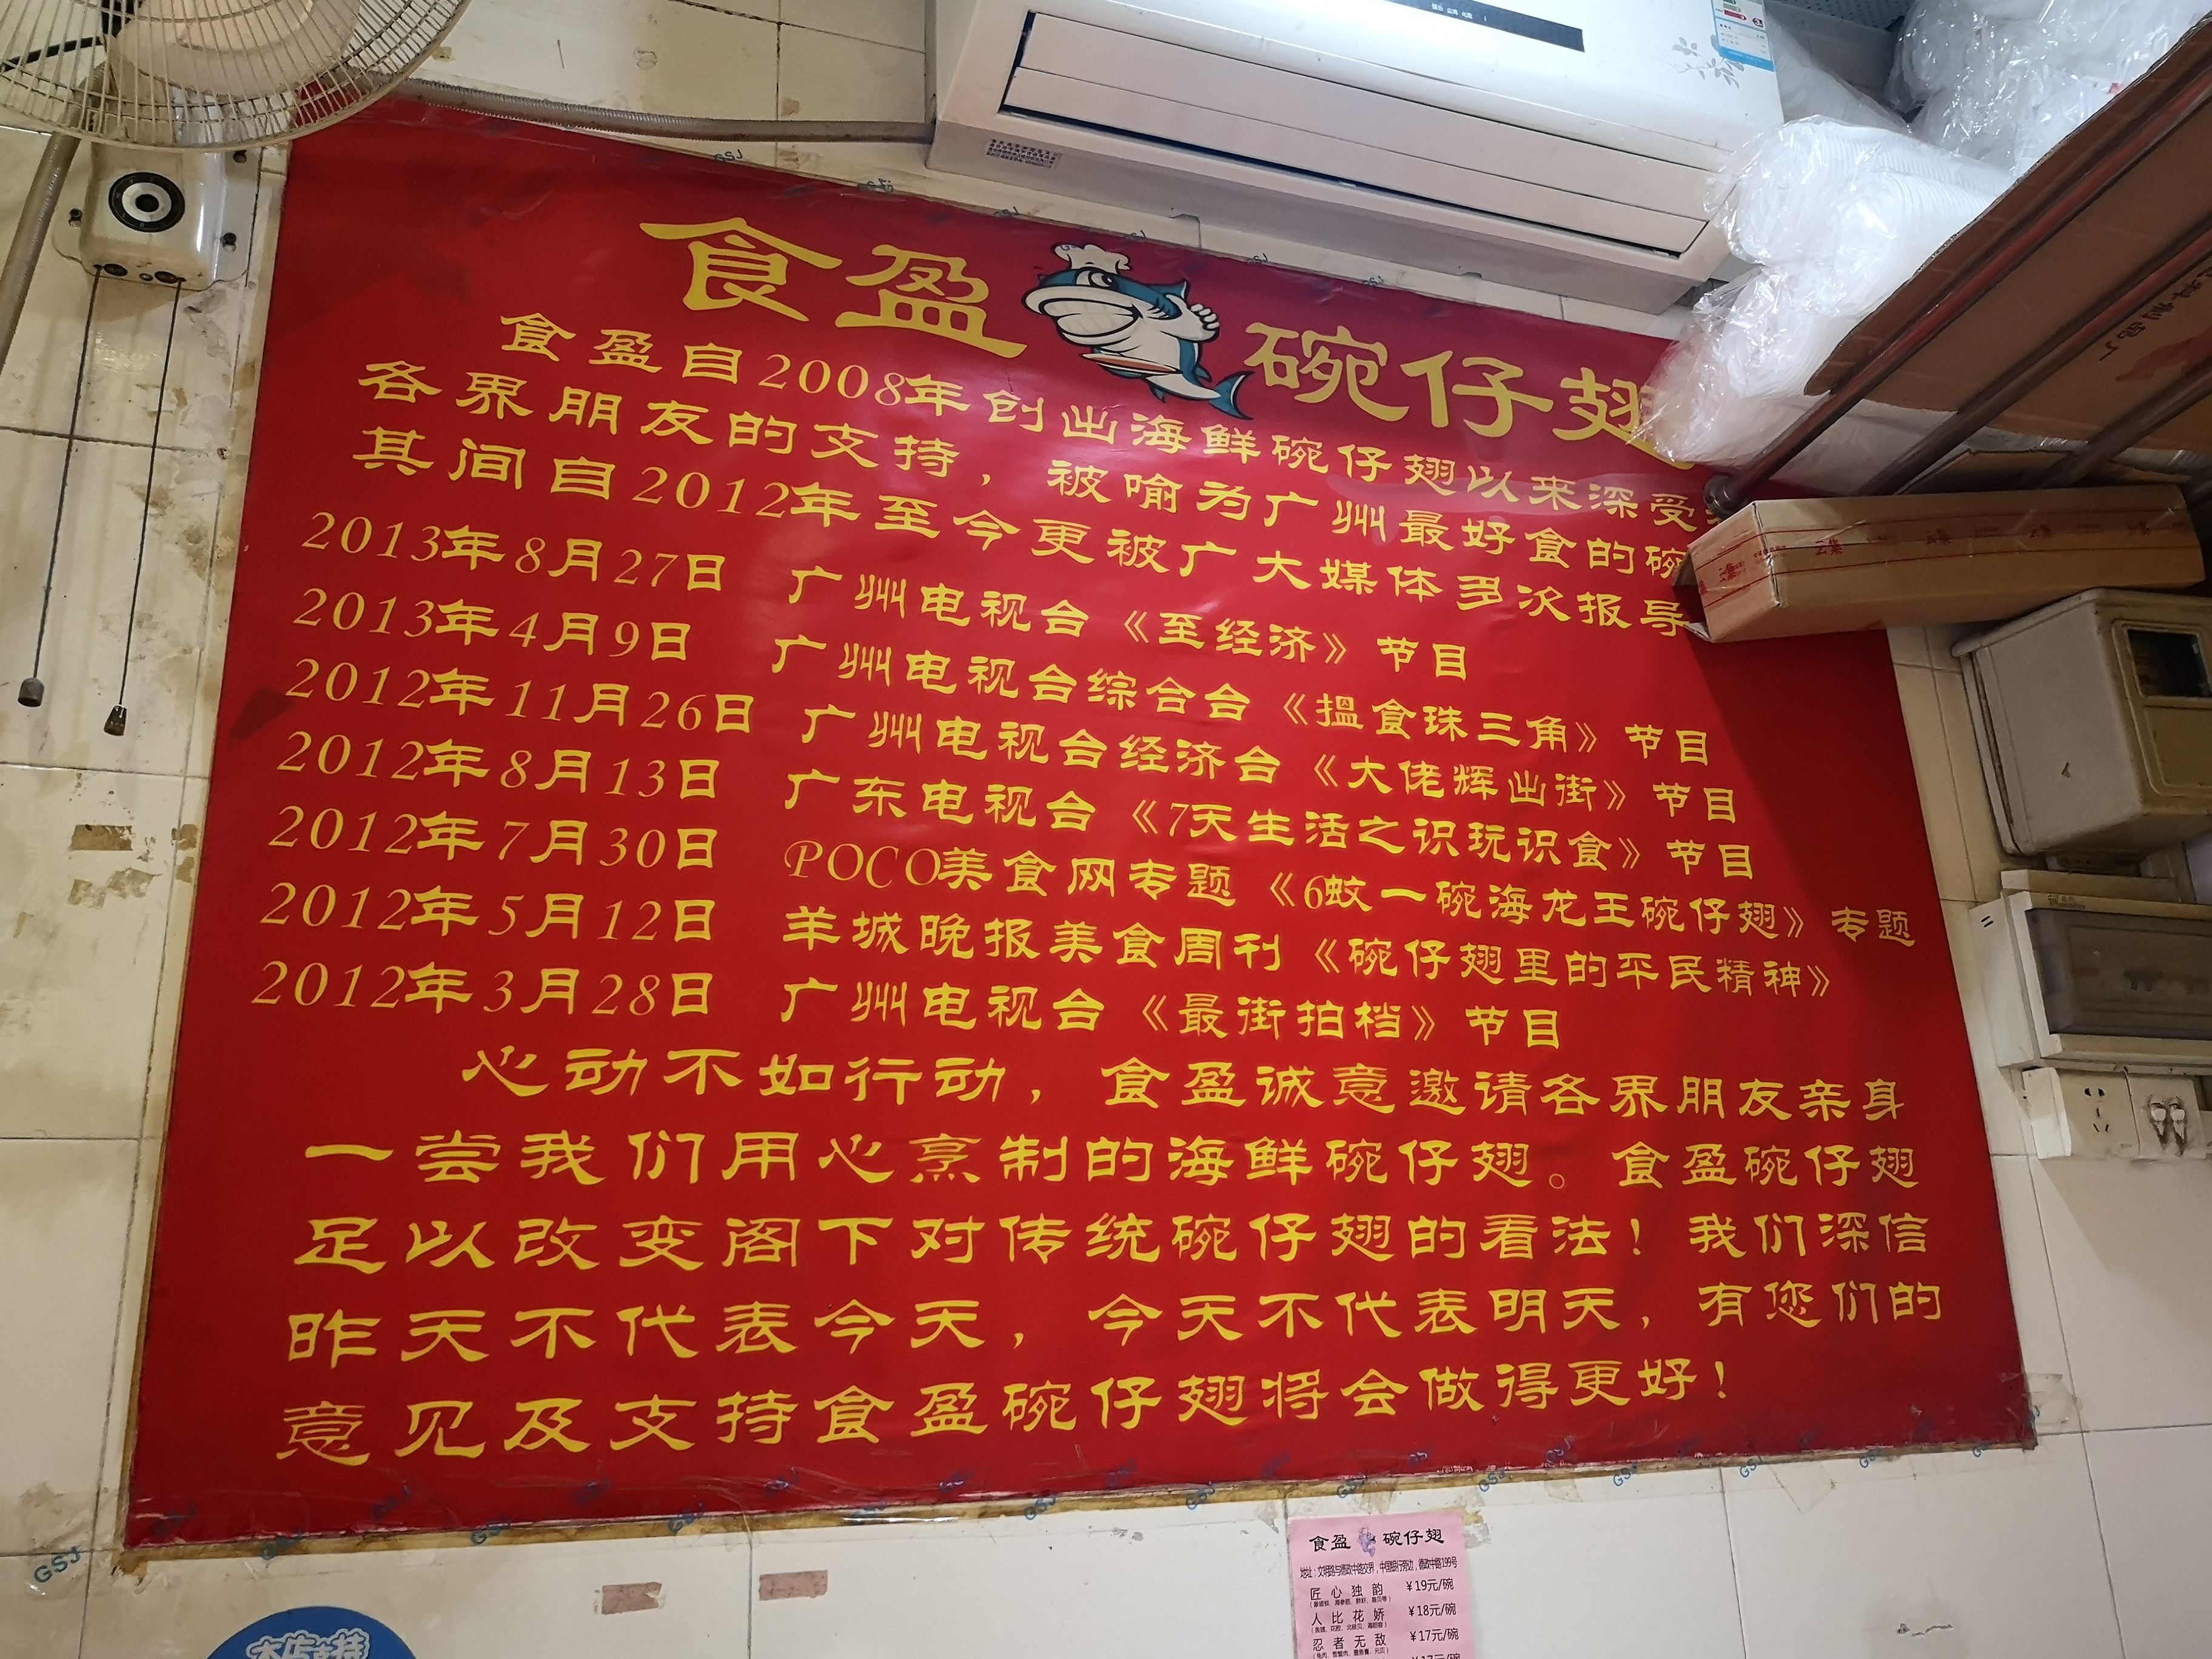 食盈 碗仔翅
食盈自2008年创出海鲜碗仔翅以来深受
各界朋友的支持，被喻为广州最好食的碗
其间自2012年至今更被广大媒体多次报导
2013年8月27日 广州电视台《至经济》节目
2013年4月9日 广州电视台综合台《揾食珠三角》节目
2012年11月26日 广州电视台经济台《大佬辉出街》节目
2012年8月13日 广东电视台《7天生活之识玩识食》节目
2012年7月30日 POCO美食网专题《6蚊一碗海龙王碗仔翅》专题
2012年5月12日 羊城晚报美食周刊《碗仔翅里的平民精神》
2012年3月28日 广州电视台《最街拍档》节目
心动不如行动，食盈诚意邀请各界朋友亲身
一尝我们用心烹制的海鲜碗仔翅。食盈碗仔翅
足以改变阁下对传统碗仔翅的看法！我们深信
昨天不代表今天，今天不代表明天，有您们的
意见及支持食盈碗仔翅将会做得更好！
GSJ
食盈 碗仔翅
地址：文明路与德政中路交界，中国银行旁边，德政中路199号
匠心独韵 ￥19元/碗
人比花娇 ￥18元/碗
忍者无敌 ￥17元/碗
本店支持